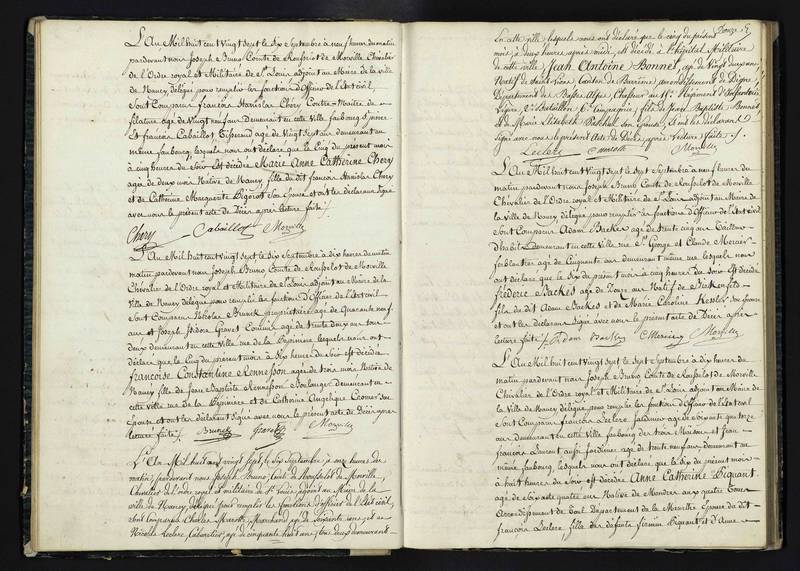 L'An Mil huit cent Vingt Sept le Six Septembre à neuf heures du matin
pardevant nous Joseph Bruno Comte de Rousselot de Morville Chevalier
de l'Ordre royal et Militaire de St Louis adjoint au Maire de la ville
de Nancy délégué pour remplir les fonctions d'Officier de l'Etat civil,
Sont Comparus françois Stanislas Chery Contre-Maître de
filature agé de Vingt neuf ans Demeurant en cette Ville faubourg
Et françois Caballot Tisserand agé de Vingt Sept ans demeurant au
même faubourg, lesquels nous ont déclaré que le Cinq du présent mois
à cinq heures du Soir Est décédée Marie Anne Catherine Chery
agée de deux mois Native de Nancy, fille du dit françois Stanislas Chery
et de Catherine Marguerite Bigorot Son Epouse et ont les déclarans Signé
avec nous le présent acte de Décès après lecture faite /.
Chery Caballot Morville
L'An Mil huit cent Vingt Sept le Six Septembre à dix heures du
matin pardevant nous Joseph Bruno Comte de Rousselot de Morville
Chevalier de l'Ordre royal et Militaire de St Louis adjoint au Maire de la
Ville de Nancy délégué pour remplir les fonctions d'Officier de l'Etat civil
Sont Comparus Nicolas Brunet propriétaire agé de Quarante neuf
ans et Joseph Isidore Gravet Commis agé de trente deux ans tous
deux demeurant en cette Ville rue de la Pépinière lesquels nous ont
déclaré que le Cinq du présent mois à Six heures du Soir est décédée
françoise Constantine Rennesson agée de trois mois Native de
Nancy fille de Jean Baptiste Rennesson Boulanger demeurant en
cette Ville rue de la Pépinière et de Catherine Angélique Son
Epouse et ont les déclarans Signé avec nous le présent acte de Décès après
lecture faite /. Brunet Gravet Morville
L'An Mil huit cent vingt Sept, le Six Septembre à onze heures du
matin, pardevant nous Joseph Bruno Comte de Rousselot de Morville,
Chevalier de l'ordre royal et militaire de St Louis, adjoint au Maire de la
ville de Nancy, délégué pour remplir les fonctions d'officier de l'Etat civil,
Sont comparus Charles Marchand agé de Soixante ans, et
Nicolas Leclerc Cabaretier, agé de cinquante huit ans, tous deux demeurant
Douze
En cette ville, lesquels nous ont déclaré que le cinq du présent
mois à deux heures après midi, est décédé à l'hôpital Militaire
de cette ville, Jean Antoine Bonnet, agé de Vingt deux ans
Natif de Canton de Barrême arrondissement de Digne
Département des Basses Alpes, Chasseur au 15e Régiment d'Infanterie
légère, 2e Bataillon, 6e Compagnie, fils de Jean Baptiste Bonnet
et de Marie Elisabeth son Epouse, Et ont les déclarans
Signé avec nous le présent Acte de Décès, après lecture faite /.
Leclerc Morville
L'An Mil huit cent Vingt Sept le Sept Septembre à neuf heures du
matin pardevant nous Joseph Bruno Comte de Rousselot de Morville
Chevalier de l'Ordre royal et Militaire de St Louis adjoint au Maire de
la Ville de Nancy délégué pour remplir les fonctions d'Officier de l'Etat civil
Sont Comparus Adam Backes agé de trente cinq ans Tailleur
d'habits Demeurant en cette Ville rue St George et Claude Mercier
ferblantier agé de Cinquante ans demeurant même rue lesquels nous
ont déclaré que le Six du présent mois à cinq heures du Soir Est décédé
Fréderic Backes agé de Douze ans Natif de
fils du dit Adam Backes et de Marie Caroline Kessler Son Epouse
et ont les déclarans Signé avec nous le présent acte de Décès après
lecture faite /. Adam Backes C Mercier Morville
L'An Mil huit cent Vingt Sept le Sept Septembre à dix heures du
matin pardevant nous Joseph Bruno Comte de Rousselot de Morville
Chevalier de l'Ordre royal et Militaire de St Louis adjoint au Maire de
la Ville de Nancy délégué pour remplir les fonctions d'Officier de l'Etat civil
Sont Comparus françois Leclerc Jardinier agé de Soixante quatorze
ans Demeurant en cette Ville faubourg des trois Maisons et Jean
françois Laurent aussi Jardinier agé de trente neuf ans Demeurant au
même faubourg, lesquels nous ont déclaré que le Six du présent mois
à huit heures du Soir est décédée Anne Catherine Piquant
agée de Soixante quatre ans Native de Manoncourt aux quatre
Arrondissement de Toul Département de la Meurthe Epouse du dit
françois Leclerc, fille des défunts firmin Piquant et d'Anne